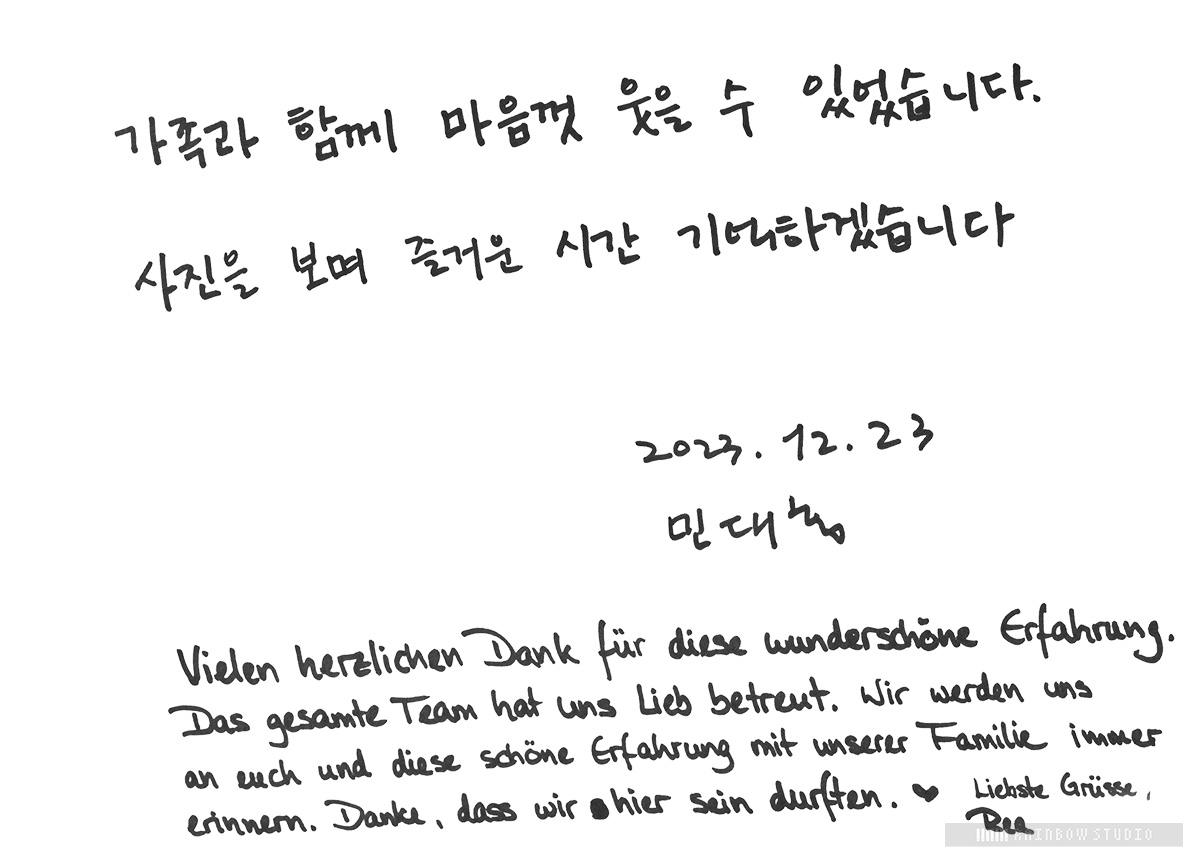 가족과 함께 마음껏 웃을 수 있었습니다.
사진을 보며 즐거운 시간 기억하겠습니다
2023. 12. 23
민대
Vielen herzlichen Dank für diese wunderschöne Erfahrung.
Das gesamte Team hat uns Lieb betreut. Wir werden uns
an euch und diese schöne Erfahrung mit unserer Familie immer
erinnern. Danke, dass wir hier sein durften. ♥ Liebste Grüsse,
Bea
RAINBOW STUDIO